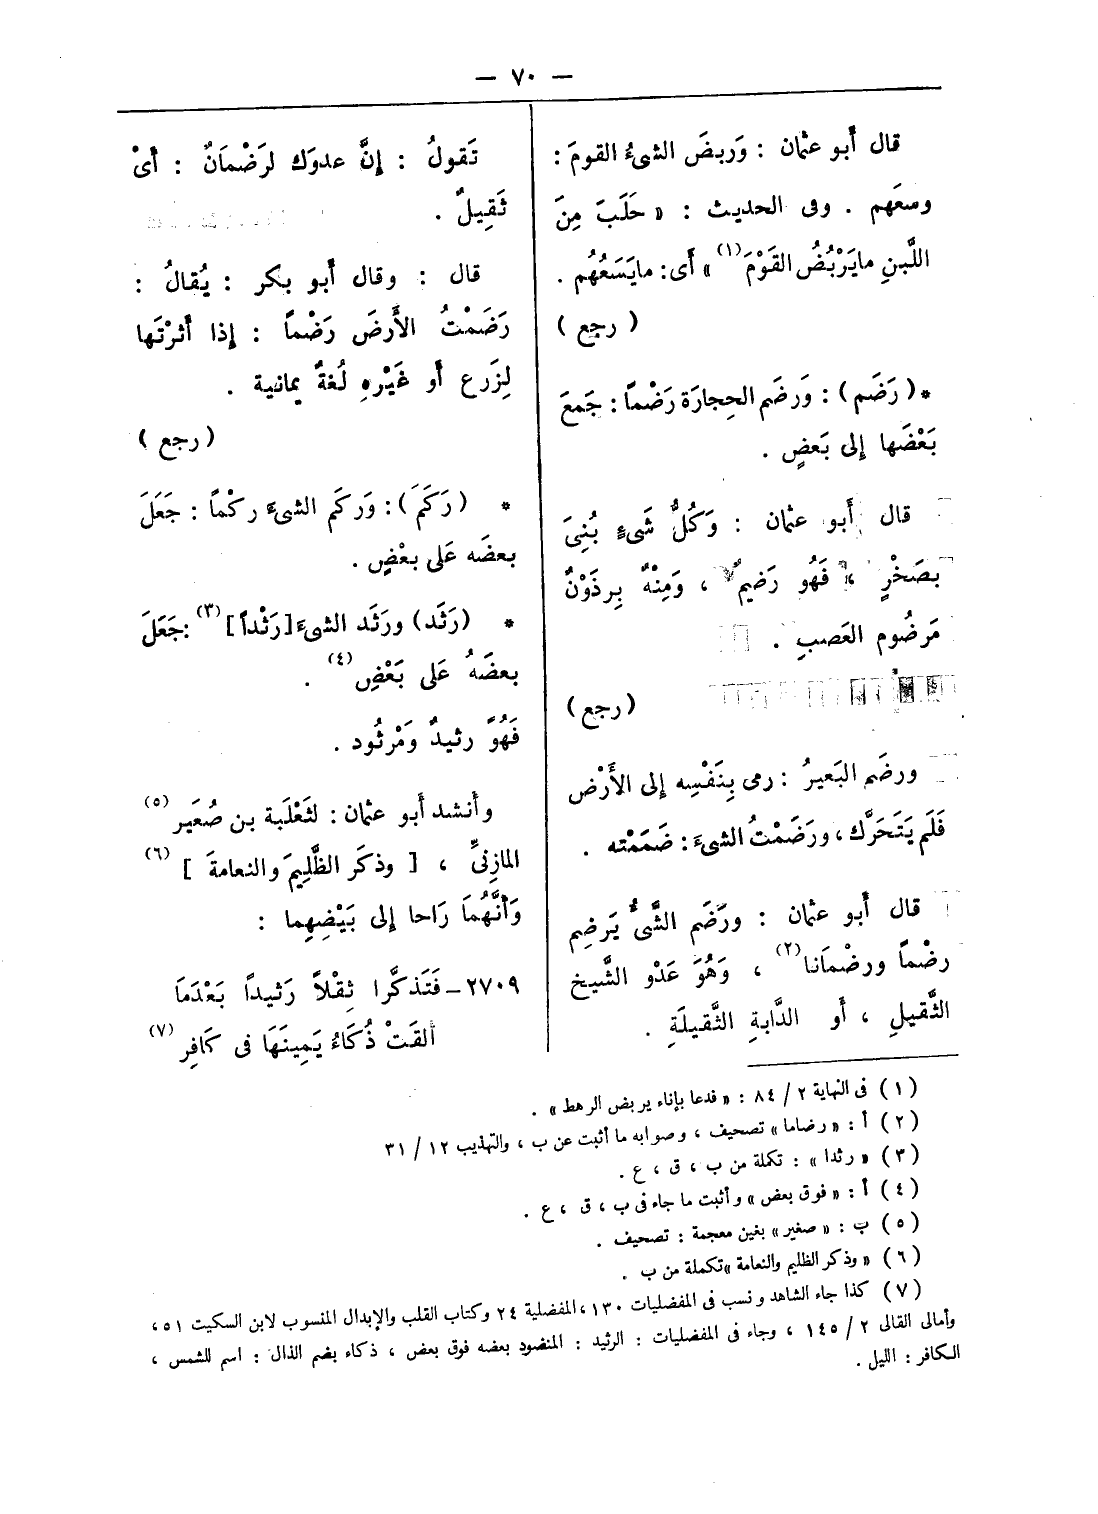 — ٧٠ —
قال أَبو عثمان : وَربضَ الشىءُ القومَ :
وسعَهم . وفى الحديث : « حَلَبَ مِنَ
اللَّبنِ مايَرْبُضُ القَوْمَ (١) » أَى : مايَسَعُهُم .
( رجع )
*( رَضَم ) : وَرضَم الحِجارَة رَضْماً : جَمعَ
بَعْضَها إلى بَعضٍ .
قال أَبو عثمان : وَكُلُّ شَىءٍ بُنِىَ
بصَخْرٍ ، فَهُو رَضيمٌ ، وَمِنْهُ بِرذَوْنٌ
مَرضُوم العَصبِ .
( رجع )
ورضَم البَعيرُ : رمى بِنَفْسِه إلى الأَرْض
فَلَم يَتَحَرَّك ، ورَضَمْتُ الشىءَ : ضَمَمْته .
قال أَبو عثمان : ورَضَم الشَّىُ يَرضِم
رضْماً ورضْمَانا (٢) ، وَهُوَ عَدْو الشَّيخ
الثَّقيلِ ، أَو الدَّابةِ الثَّقيلَةِ .
تَقولُ : إنَّ عدوَك لرَضْمَانٌ : أىْ
ثَقِيلٌ .
قال : وقال أَبو بكر : يُقالُ :
رَضَمْتُ الأَرضَ رَضْماً : إذا أَثرْتَها
لِزَرع أَو غَيْرِهِ لُغةٌ يمانية .
( رجع )
* ( رَكَمَ ) : وَركَم الشىءَ ركْماً : جَعَلَ
بعضَه عَلى بعْضٍ .
* ( رَثَد ) ورثَد الشىءَ [ رَثْداً ] (٣) : جَعَلَ
بعضَهُ عَلى بَعْضٍ (٤) .
فَهُوَ رثيدٌ وَمْرثُود .
وأَنشد أَبو عثمان : لثَعْلَبة بن صُعَير (٥)
المازِنىِّ ، [ وذكَر الظَّلِيمَ والنعامةَ ] (٦)
وَأَنَّهُمَا رَاحا إلى بَيْضِهِما :
٢٧٠٩ – فَتَذكَّرا ثِقْلاً رَثيداً بَعْدَمَا
أَلقَتْ ذُكَاءُ يَمِينَهَا فى كَافِرِ (٧)
( ١ ) فى النهاية ٢ / ٨٤ : « فدعا بإناء يربض الرهط » .
( ٢ ) أ : « رضاما » تصحيف ، وصوابه ما أثبت عن ب ، والتهذيب ١٢ / ٣١
( ٣ ) « رثدا » : تكملة من ب ، ق ، ع .
( ٤ ) أ : « فوق بعض » وأثبت ما جاء فى ب ، ق ، ع .
( ٥ ) ب : « صغير » بغين معجمة : تصحيف .
( ٦ ) « وذكر الظليم والنعامة » تكملة من ب .
( ٧ ) كذا جاء الشاهد ونسب فى المفضليات ١٣٠ ، المفضلية ٢٤ وكتاب القلب والإبدال المنسوب لابن السكيت ٥١ ،
وأمالى القالى ٢ / ١٤٥ ، وجاء فى المفضليات : الرثيد : المنضود بعضه فوق بعض ، ذكاء بضم الذال : اسم للشمس ،
الكافر : الليل .